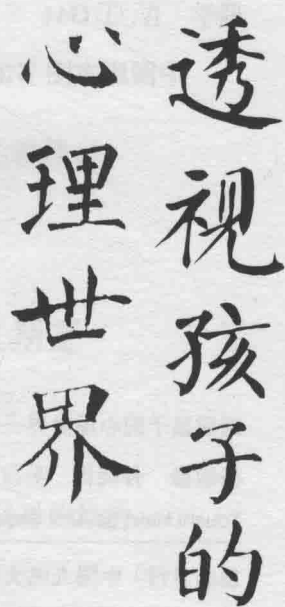 透视孩子的
心理世界